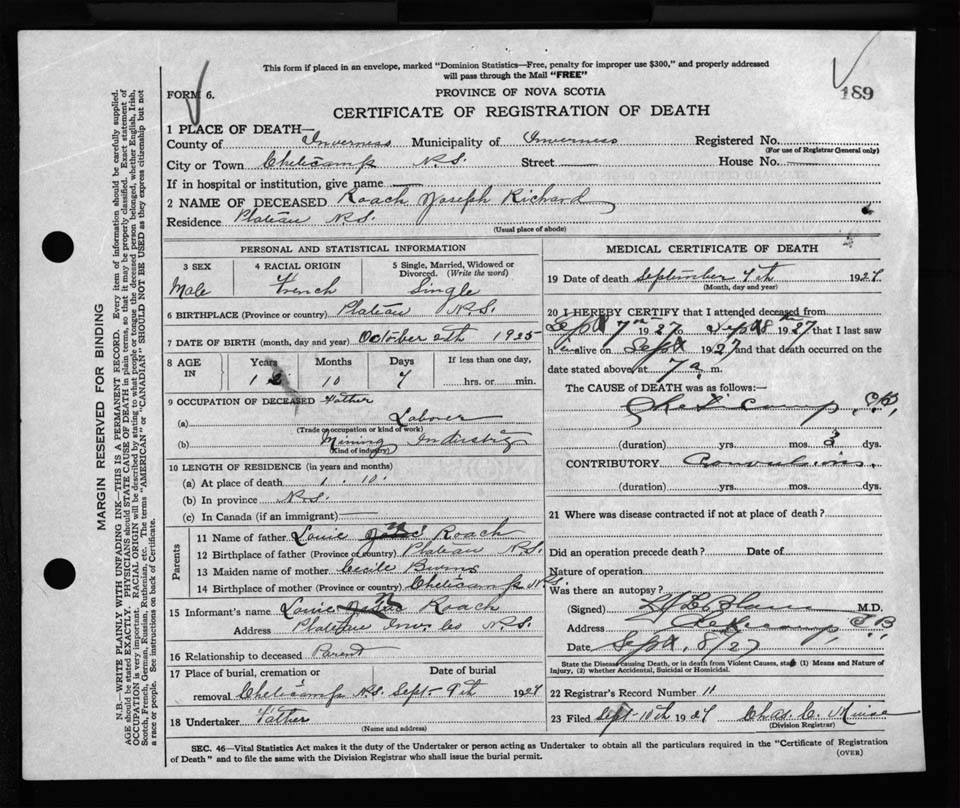 This form if placed in an envelope, marked "Dominion Statistics—Free, penalty for improper use $300," and properly addressed
will pass through the Mail "FREE"
FORM 6.
PROVINCE OF NOVA SCOTIA
189
CERTIFICATE OF REGISTRATION OF DEATH
1 PLACE OF DEATH—
County of Inverness Municipality of Inverness Registered No.
(For use of Registrar General only)
City or Town Cheticamp N.S. Street House No.
If in hospital or institution, give name
2 NAME OF DECEASED Roach Joseph Richard
Residence Plateau N.S.
(Usual place of abode)
PERSONAL AND STATISTICAL INFORMATION
3 SEX 4 RACIAL ORIGIN 5 Single, Married, Widowed or Divorced. (Write the word)
Male French Single
6 BIRTHPLACE (Province or country) Plateau N.S.
7 DATE OF BIRTH (month, day and year) October 1925
8 AGE IN Years Months Days If less than one day,
1 10 7 hrs. or min.
9 OCCUPATION OF DECEASED Father
(a) Laborer
(Trade or occupation or kind of work)
(b) Mining Industry
(Kind of industry)
10 LENGTH OF RESIDENCE (in years and months)
(a) At place of death 1. 10.
(b) In province N.S.
(c) In Canada (if an immigrant)
Parents
11 Name of father Louie Roach
12 Birthplace of father (Province or country) Plateau N.S.
13 Maiden name of mother Cecile Burns
14 Birthplace of mother (Province or country) Cheticamp N.S.
15 Informant's name Louie Roach
Address Plateau Inv. Co N.S.
16 Relationship to deceased Parent
17 Place of burial, cremation or Date of burial
removal Cheticamp N.S. Sept- 9th 1927
18 Undertaker Father
(Name and address)
MEDICAL CERTIFICATE OF DEATH
19 Date of death September 7th 1927
(Month, day and year)
20 I HEREBY CERTIFY that I attended deceased from
Sept 7th 1927 Sept 8th 1927 that I last saw
h alive on Sept 1927 and that death occurred on the
date stated above at 7 a m.
The CAUSE of DEATH was as follows:—
(duration) yrs. mos. 3 dys.
CONTRIBUTORY Convulsions.
(duration) yrs. mos. dys.
21 Where was disease contracted if not at place of death?
Did an operation precede death? Date of
Nature of operation
Was there an autopsy?
(Signed) M.D.
Address
Date Sept. 8/27
State the Disease causing Death, or in death from Violent Causes, state (1) Means and Nature of
Injury, (2) whether Accidental, Suicidal or Homicidal.
22 Registrar's Record Number 11
23 Filed Sept-10th 1927 Chas. C.
(Division Registrar)
SEC. 46—Vital Statistics Act makes it the duty of the Undertaker or person acting as Undertaker to obtain all the particulars required in the "Certificate of Registration
of Death" and to file the same with the Division Registrar who shall issue the burial permit.
(OVER)
MARGIN RESERVED FOR BINDING
N.B.—WRITE PLAINLY WITH UNFADING INK—THIS IS A PERMANENT RECORD. Every item of information should be carefully supplied.
AGE should be stated EXACTLY. PHYSICIANS should STATE CAUSE OF DEATH in plain terms, so that it may be properly classified. Exact statement of
OCCUPATION is very important. RACIAL ORIGIN will be described by stating to what people or tongue the deceased person belonged, whether English, Irish,
Scotch, French, German, Russian, Ruthenian, etc. The terms "AMERICAN" or "CANADIAN" SHOULD NOT BE USED as they express citizenship but not
a race or people. See instructions on back of Certificate.